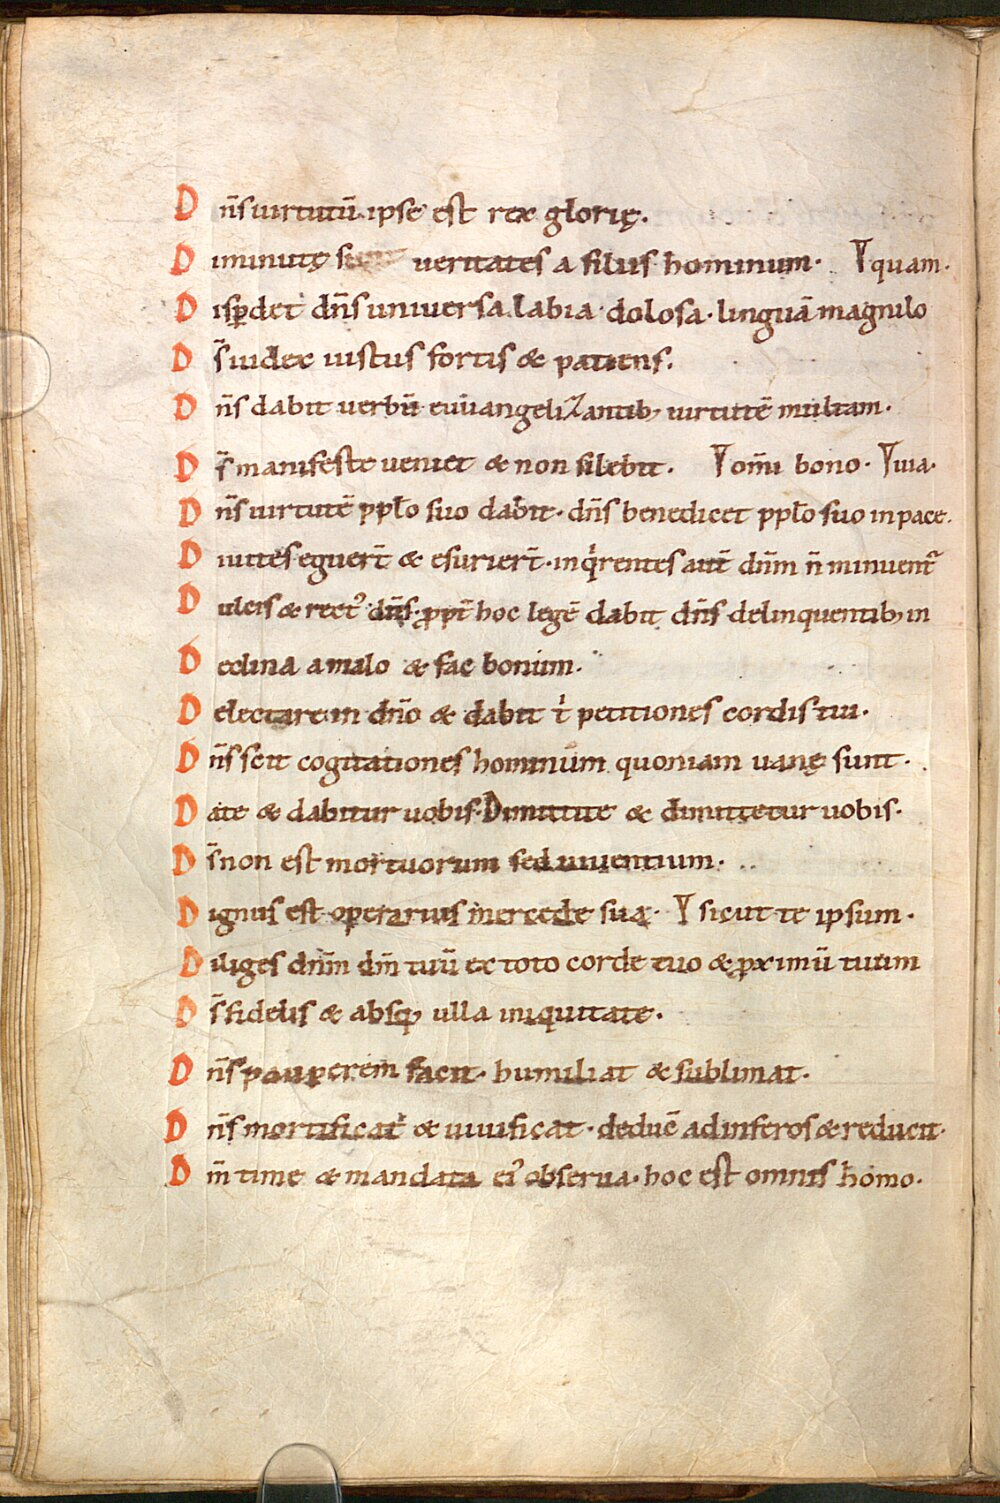 Dn̄s uirtutū ipse est rex glorię.
Diminutę sunt ueritates a filiis hominum· Ɏquam·
Disꝑdet dn̄s uniuersa labia dolosa· linguā magnilo
Ds̄ iudex iustus fortis & patiens.
Dn̄s dabit uerbū euuangelizantib; uirtutē multam·
Ds̄ manifeste ueniet & non silebit. Ɏom̄i bono· Ɏuia·
Dn̄s uirtutē ppło suo dabit· dn̄s benedicet ppło suo in pace.
Diuites eguer̄t & esurier̄t· inq̍rentes aut̄ dn̄m n̄ minuent᷑
Dulcis & rectꝰ dn̄s· ꝓpt̄ hoc legē dabit dn̄s delinquentib; in
Declina a malo & fac bonum·
Delectare in dn̄o & dabit t̍ petitiones cordis tui·
Dn̄s scit cogitationes hominum quoniam uanę sunt·
Date & dabitur uobis· Dimittite & dimittetur uobis·
Ds̄ non est mortuorum sed uiuentium·
Dignus est operarius mercede sua· Ɏ sicut te ipsum·
Diliges dn̄m dm̄ tuū ex toto corde tuo & ꝓximū tuum
Ds̄ fidelis & absq; ulla iniquitate·
Dn̄s pauperem facit· humiliat & sublimat·
Dn̄s mortificat & uiuificat· deduc̄ ad inferos & reducit·
Dm̄ time & mandata eiꝰ obserua· hoc est omnis homo·